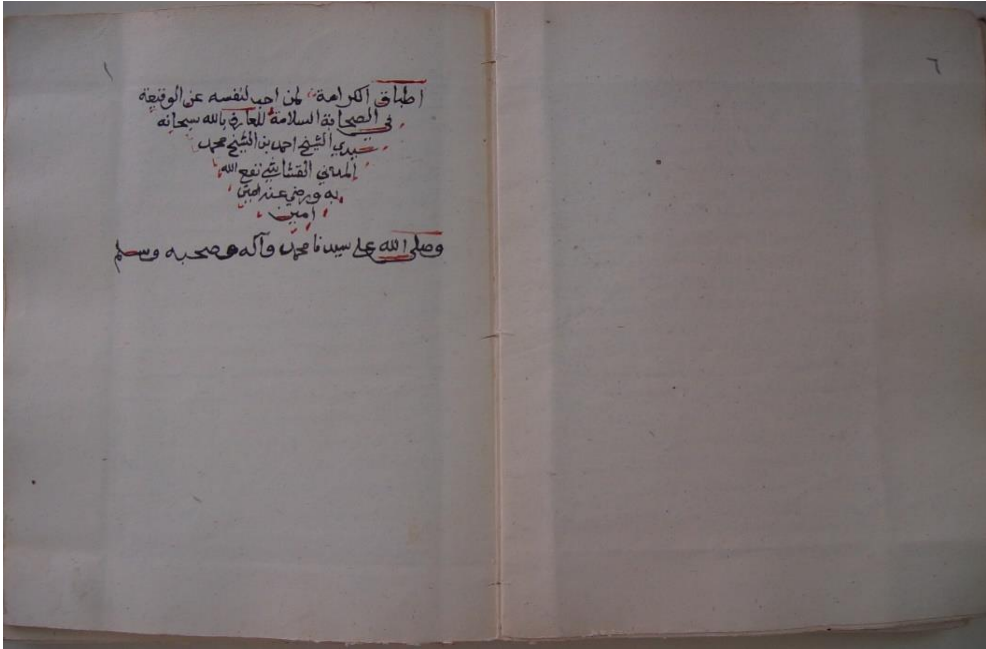 ٦
١
اطباق الكرامة لمن احب لنفسه عن الوقيعة
في الصحابة السلامة للعارف بالله سبحانه
سيدي الشيخ احمد بن الشيخ محمد
المدني القشاشي نفع الله
به ورضي عنه امين
امين
وصلى الله على سيدنا محمد وآله وصحبه وسلم